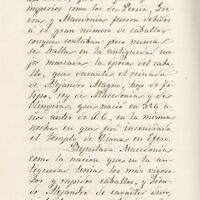 imperios como los de Persia, Gre-
cia y Macedonia fueron debidos
a el gran número de caballos
conque contaban: pero nunca
se halla en la antigüedad me-
jor marcada la época del caba-
llo, que durante el reinado
de Alejandro Magno, hijo de
Felipo, rey de Macedonia y de
Olimpias, que nació en 356 a
ños antes de J. C. en la misma
noche en que fué incendiado
el templo de Diana en Efeso.
Reputada Macedonia
como la nacion que en la an-
tigüedad tenia los mas vigoro-
sos y rapidos caballos, y sien-
do Alejandro de carácter duro,